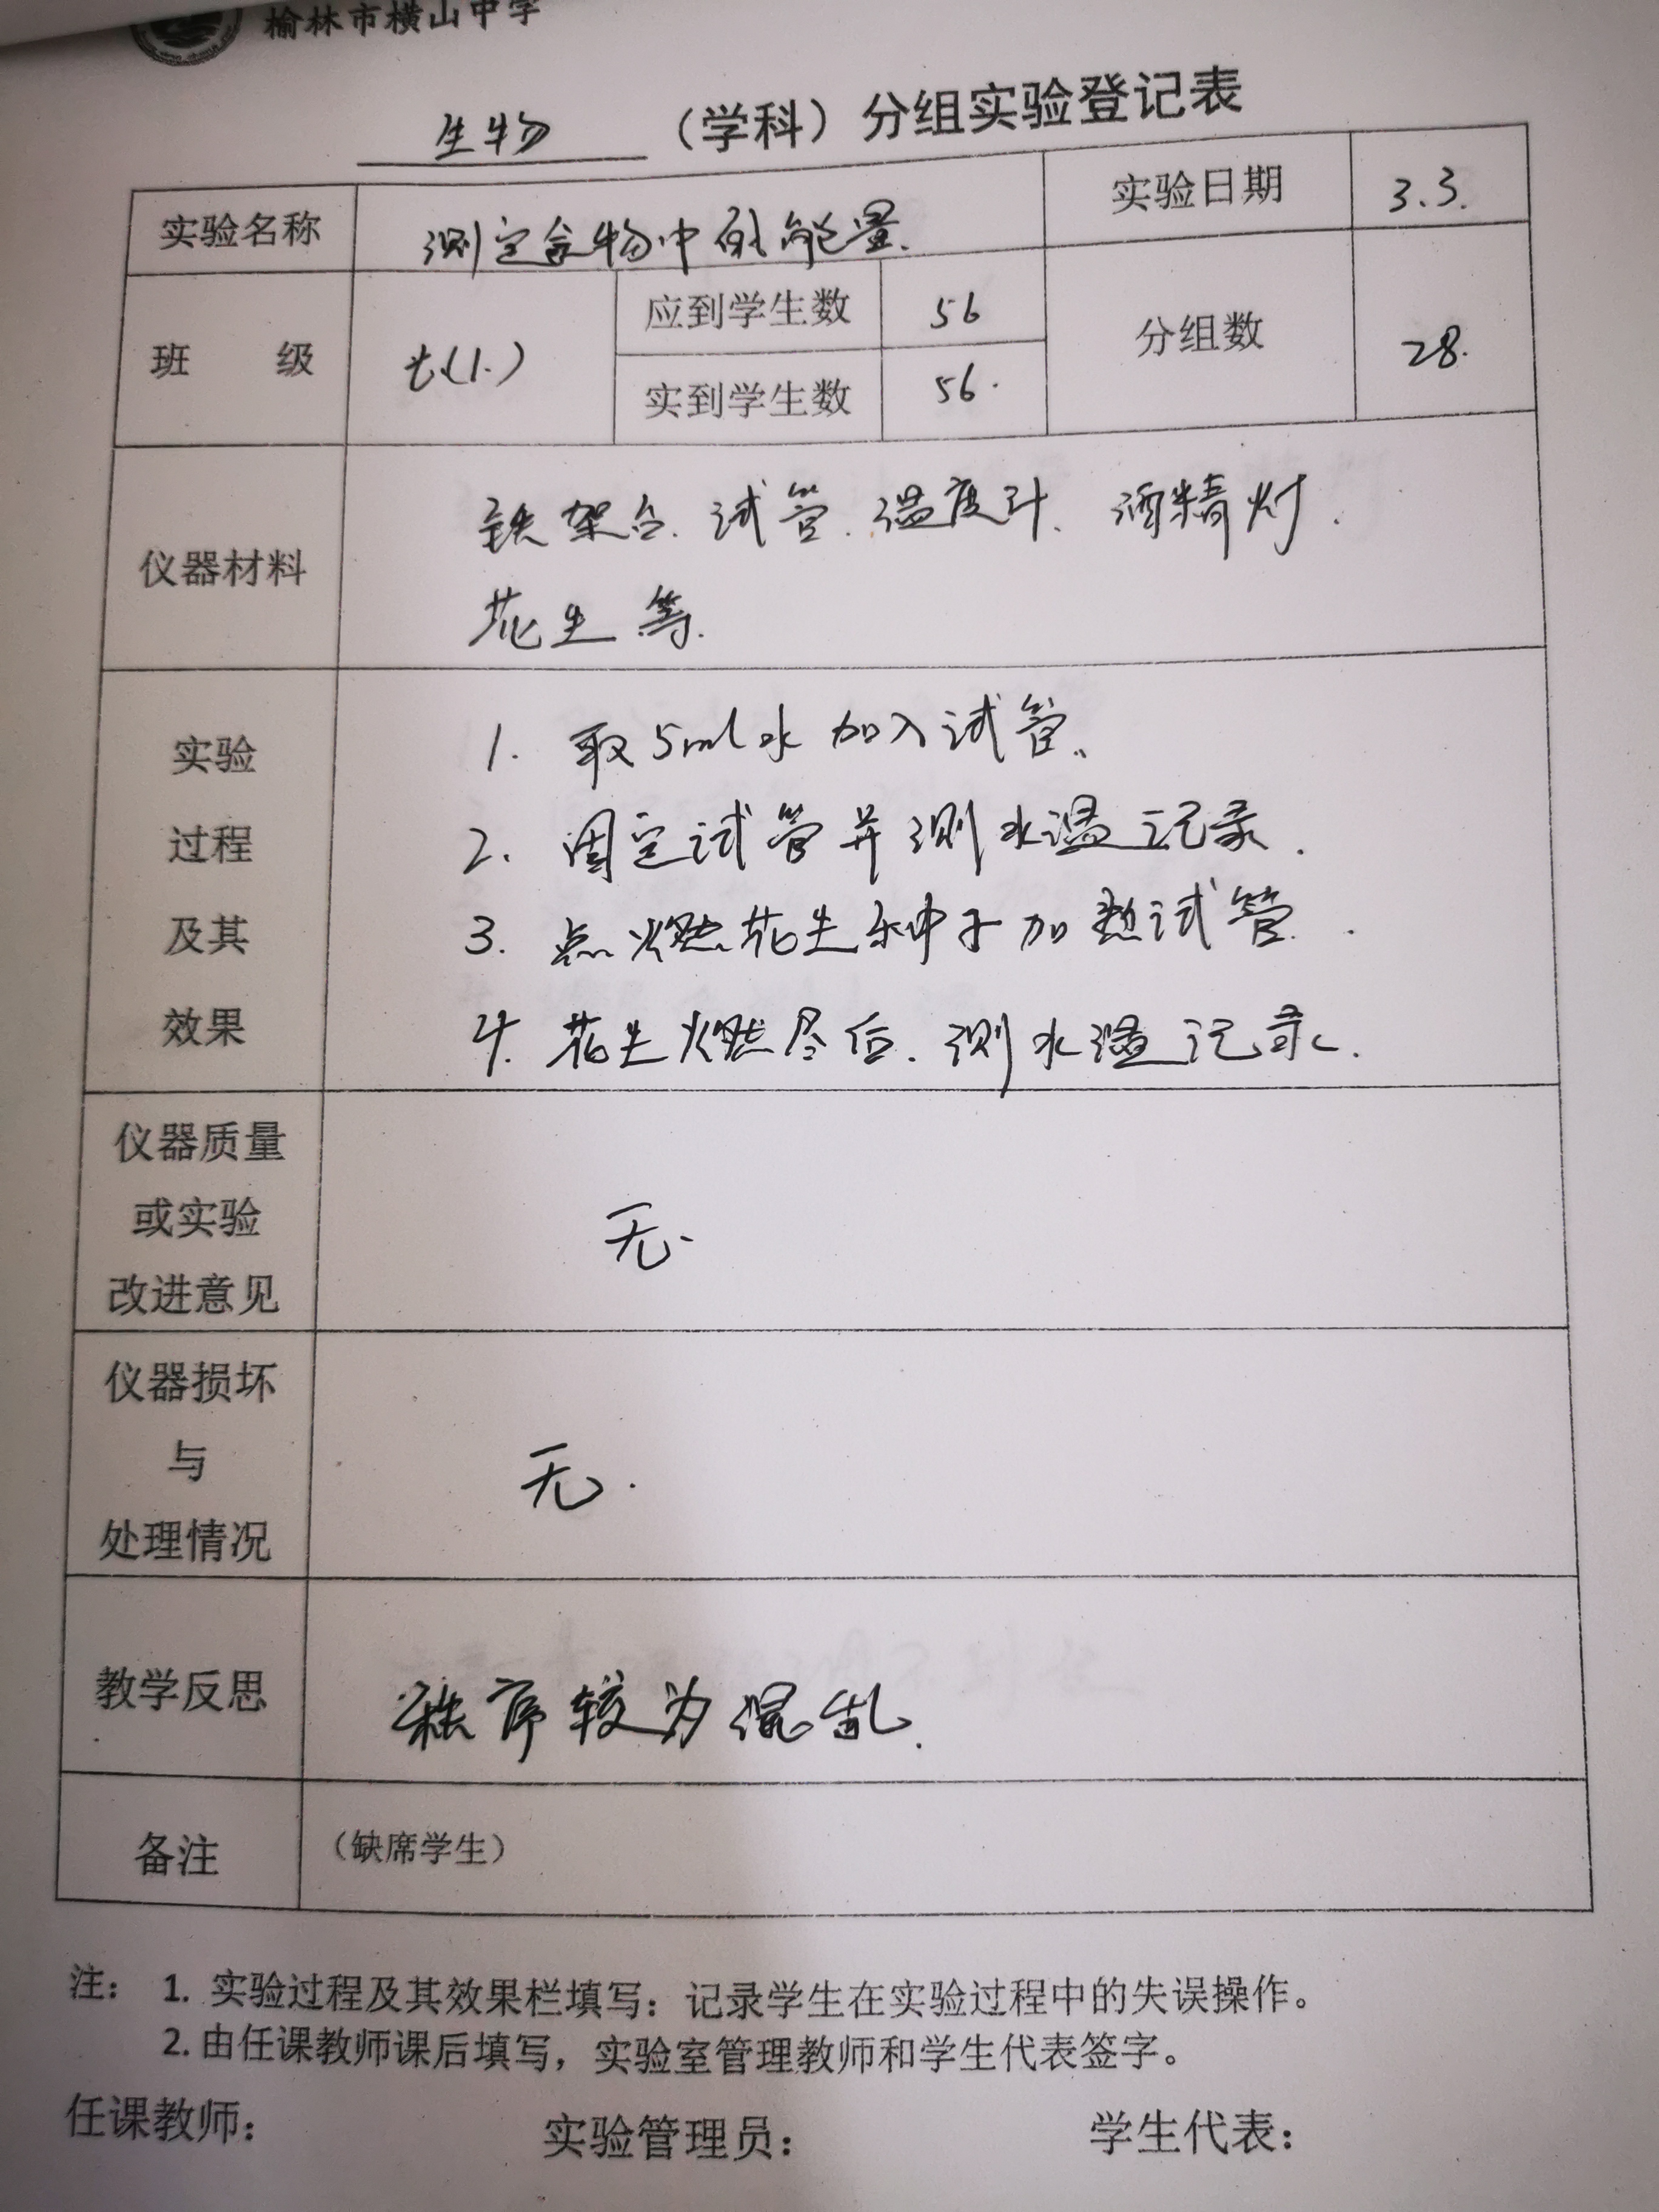 榆林市横山中学
生物 （学科）分组实验登记表
实验名称 测定食物中的能量. 实验日期 3.3.
班 级 七(1.) 应到学生数 56 分组数 28.
实到学生数 56.
仪器材料
铁架台. 试管. 温度计. 酒精灯.
花生等.
实验
过程
及其
效果
1. 取5ml水加入试管.
2. 固定试管并测水温记录.
3. 点燃花生种子加热试管.
4. 花生燃尽后. 测水温记录.
仪器质量
或实验
改进意见
无.
仪器损坏
与
处理情况
无.
教学反思 秩序较为混乱.
备注 （缺席学生）
注： 1. 实验过程及其效果栏填写：记录学生在实验过程中的失误操作。
2. 由任课教师课后填写，实验室管理教师和学生代表签字。
任课教师： 实验管理员： 学生代表：